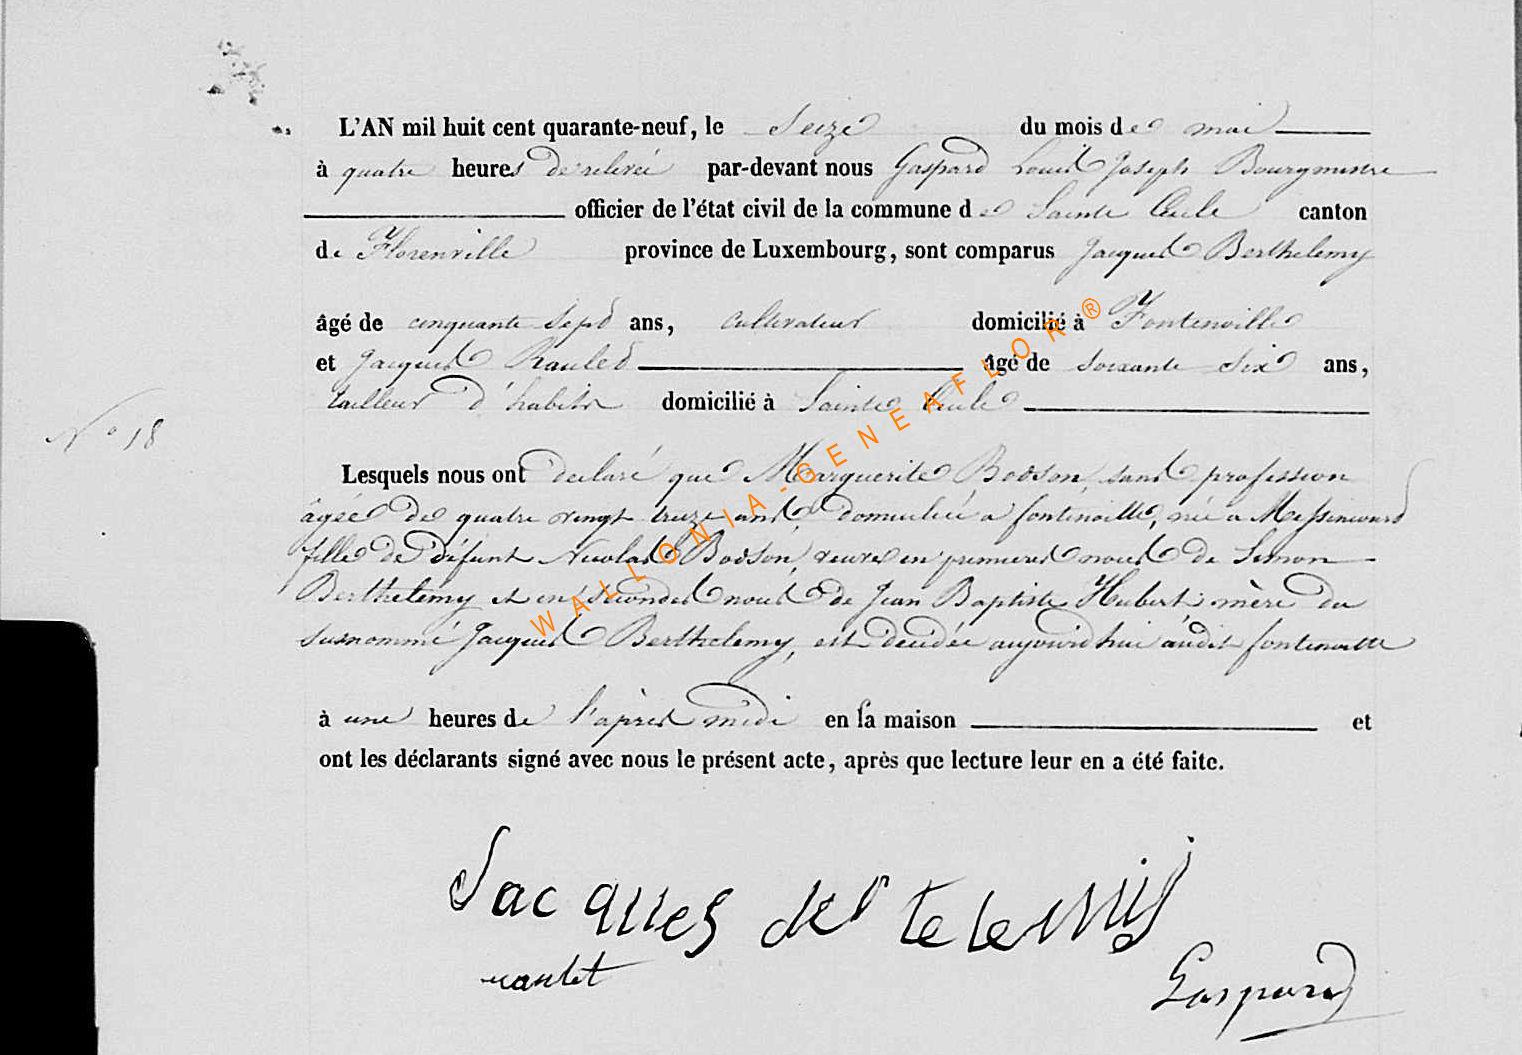 L'AN mil huit cent quarante-neuf, le Seize du mois de mai
à quatre heures de relevée par-devant nous Gaspard Louis Joseph Bourgmestre
officier de l'état civil de la commune de Sainte Cécile canton
de Florenville province de Luxembourg, sont comparus Jacques Berthelemy
âgé de cinquante Sept ans, Cultivateur domicilié à Fontenoille
et Jacques Raulet âgé de soixante Six ans,
tailleur d'habits domicilié à Sainte Cécile
N° 18
Lesquels nous ont déclaré que Marguerite Bodson, sans profession
âgée de quatre vingt treize ans, domiciliée a fontenoille, née a Messincourt
fille de défunt Nicolas Bodson, veuve en premieres noces de Simon
Berthelemy et en secondes noces de Jean Baptiste Hubert mère du
susnommé Jacques Berthelemy, est décédée aujourd'hui audit fontenoille
à une heures de l'après midi en sa maison et
ont les déclarants signé avec nous le présent acte, après que lecture leur en a été faite.
Jacques
raulet
Gaspard
WALLONIA-GENEAFLOR®